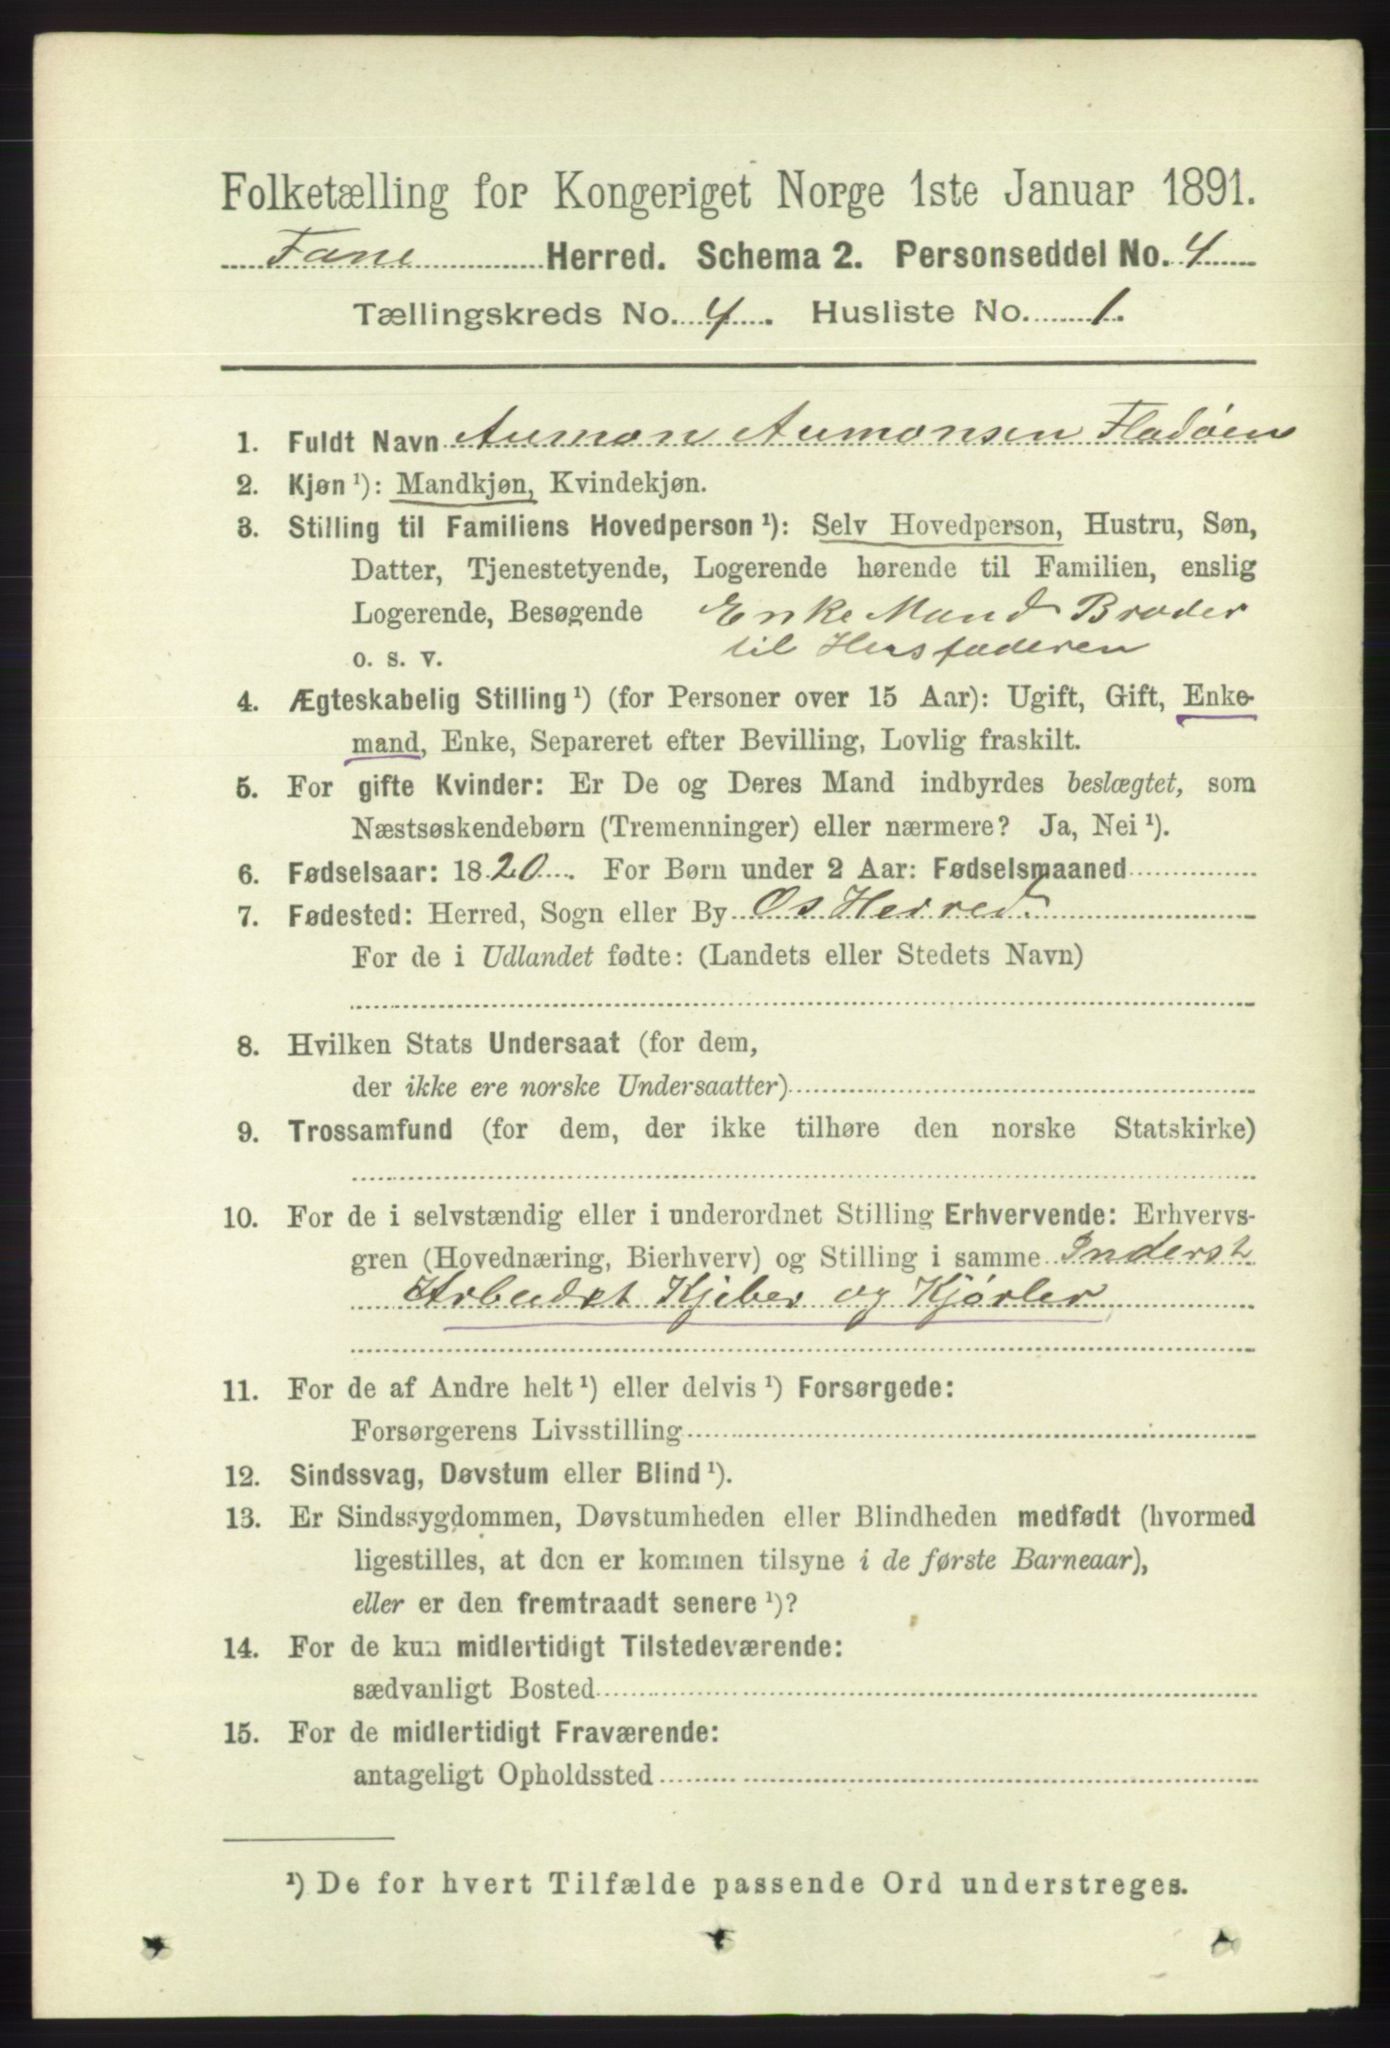 Folketælling for Kongeriget Norge 1ste Januar 1891.
Fane Herred. Schema 2. Personseddel No. 4
Tællingskreds No. 4. Husliste No. 1.
1. Fuldt Navn Aumon Aumonsen Fladøen
2. Kjøn ¹): Mandkjøn, Kvindekjøn.
3. Stilling til Familiens Hovedperson ¹): Selv Hovedperson, Hustru, Søn,
Datter, Tjenestetyende, Logerende hørende til Familien, enslig
Logerende, Besøgende Enke Mand Broder
o. s. v. til Husfaderen
4. Ægteskabelig Stilling ¹) (for Personer over 15 Aar): Ugift, Gift, Enke-
mand, Enke, Separeret efter Bevilling, Lovlig fraskilt.
5. For gifte Kvinder: Er De og Deres Mand indbyrdes beslægtet, som
Næstsøskendebørn (Tremenninger) eller nærmere? Ja, Nei ¹).
6. Fødselsaar: 1820. For Børn under 2 Aar: Fødselsmaaned
7. Fødested: Herred, Sogn eller By Os Herred
For de i Udlandet fødte: (Landets eller Stedets Navn)
8. Hvilken Stats Undersaat (for dem,
der ikke ere norske Undersaatter)
9. Trossamfund (for dem, der ikke tilhøre den norske Statskirke)
10. For de i selvstændig eller i underordnet Stilling Erhvervende: Erhvervs-
gren (Hovednæring, Bierhverv) og Stilling i samme Inderst
Arbeidet Kjiber og Kjørler
11. For de af Andre helt ¹) eller delvis ¹) Forsørgede:
Forsørgerens Livsstilling
12. Sindssvag, Døvstum eller Blind ¹).
13. Er Sindssygdommen, Døvstumheden eller Blindheden medfødt (hvormed
ligestilles, at den er kommen tilsyne i de første Barneaar),
eller er den fremtraadt senere ¹)?
14. For de kun midlertidigt Tilstedeværende:
sædvanligt Bosted
15. For de midlertidigt Fraværende:
antageligt Opholdssted
¹) De for hvert Tilfælde passende Ord understreges.